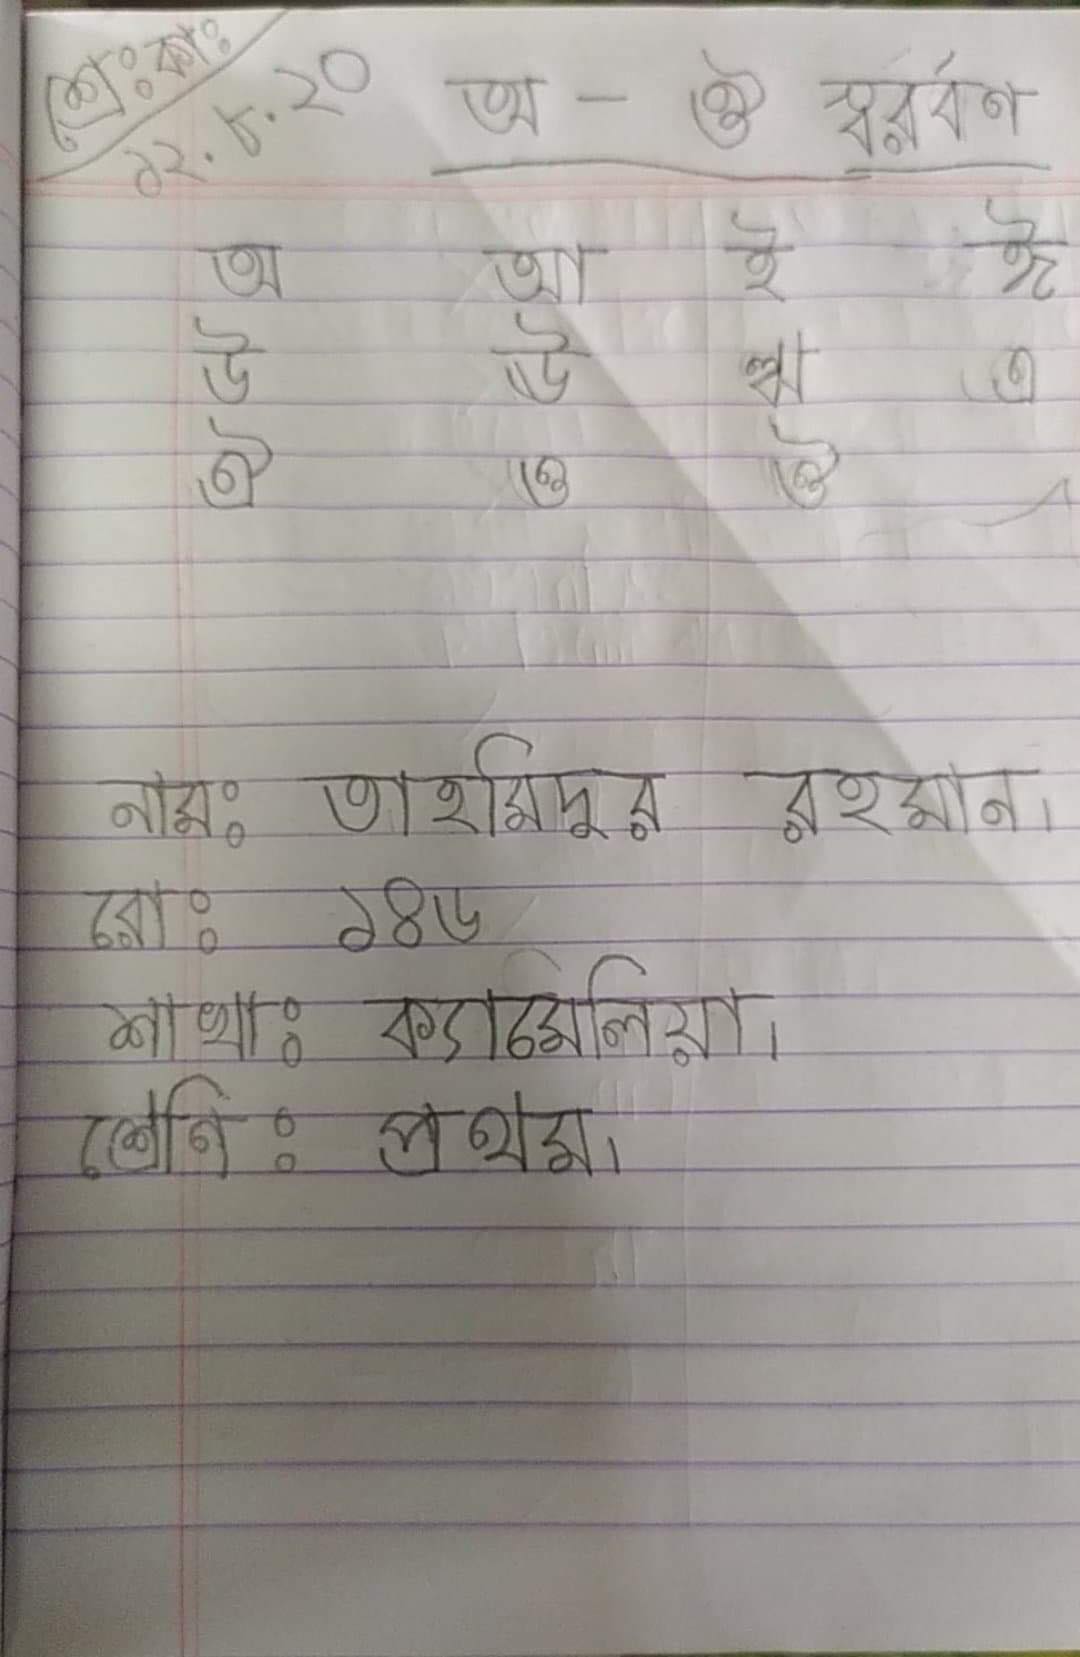 শ্রেঃ কাঃ
১২.৮.২০
অ - ঔ স্বরবর্ণ
অ আ ই ঈ
উ ঊ ঋ এ
ঐ ও ঔ
নামঃ তাহমিদুর রহমান।
রোঃ ১৪৬
শাখাঃ ক্যামেলিয়া।
শ্রেনি ঃ প্রথম।